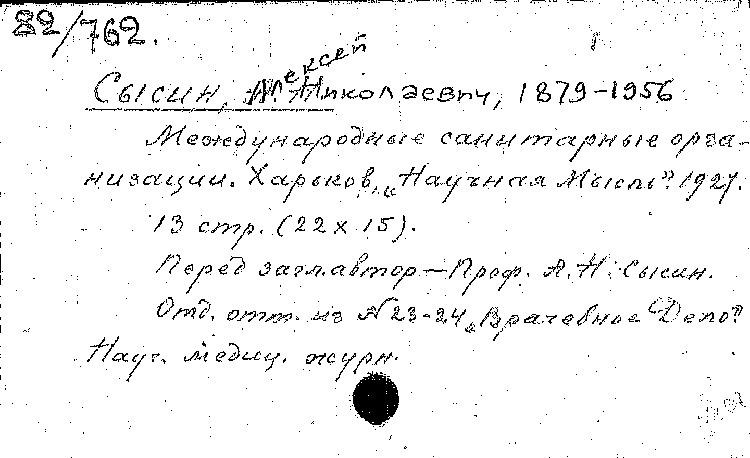 82/762.
Сысин, Алексей Николаевич, 1879-1956
Международные санитарные орга-
низации. Харьков, „Научная Мысль“ 1927.
13 стр. (22 x 15).
Перед загл. автор — Проф. А. Н. Сысин.
Отд. отт. из N 23-24 „Врачебное Дело“
Науч. медиц. журн.